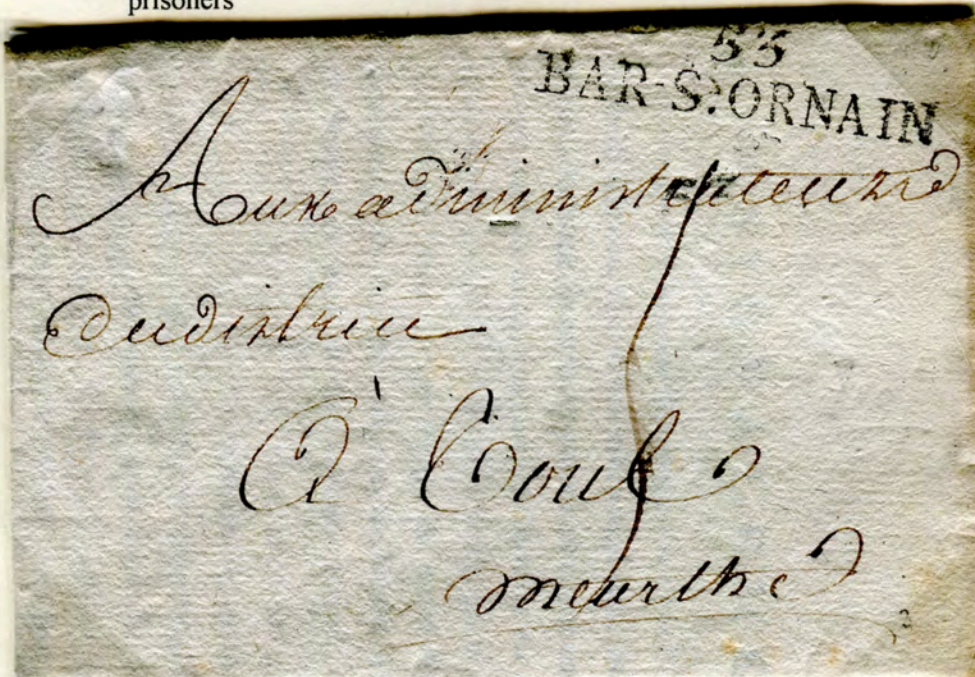 prisoners
53
BAR-S.ORNAIN
Aux administrateurs
du district
à Toul
meurthe